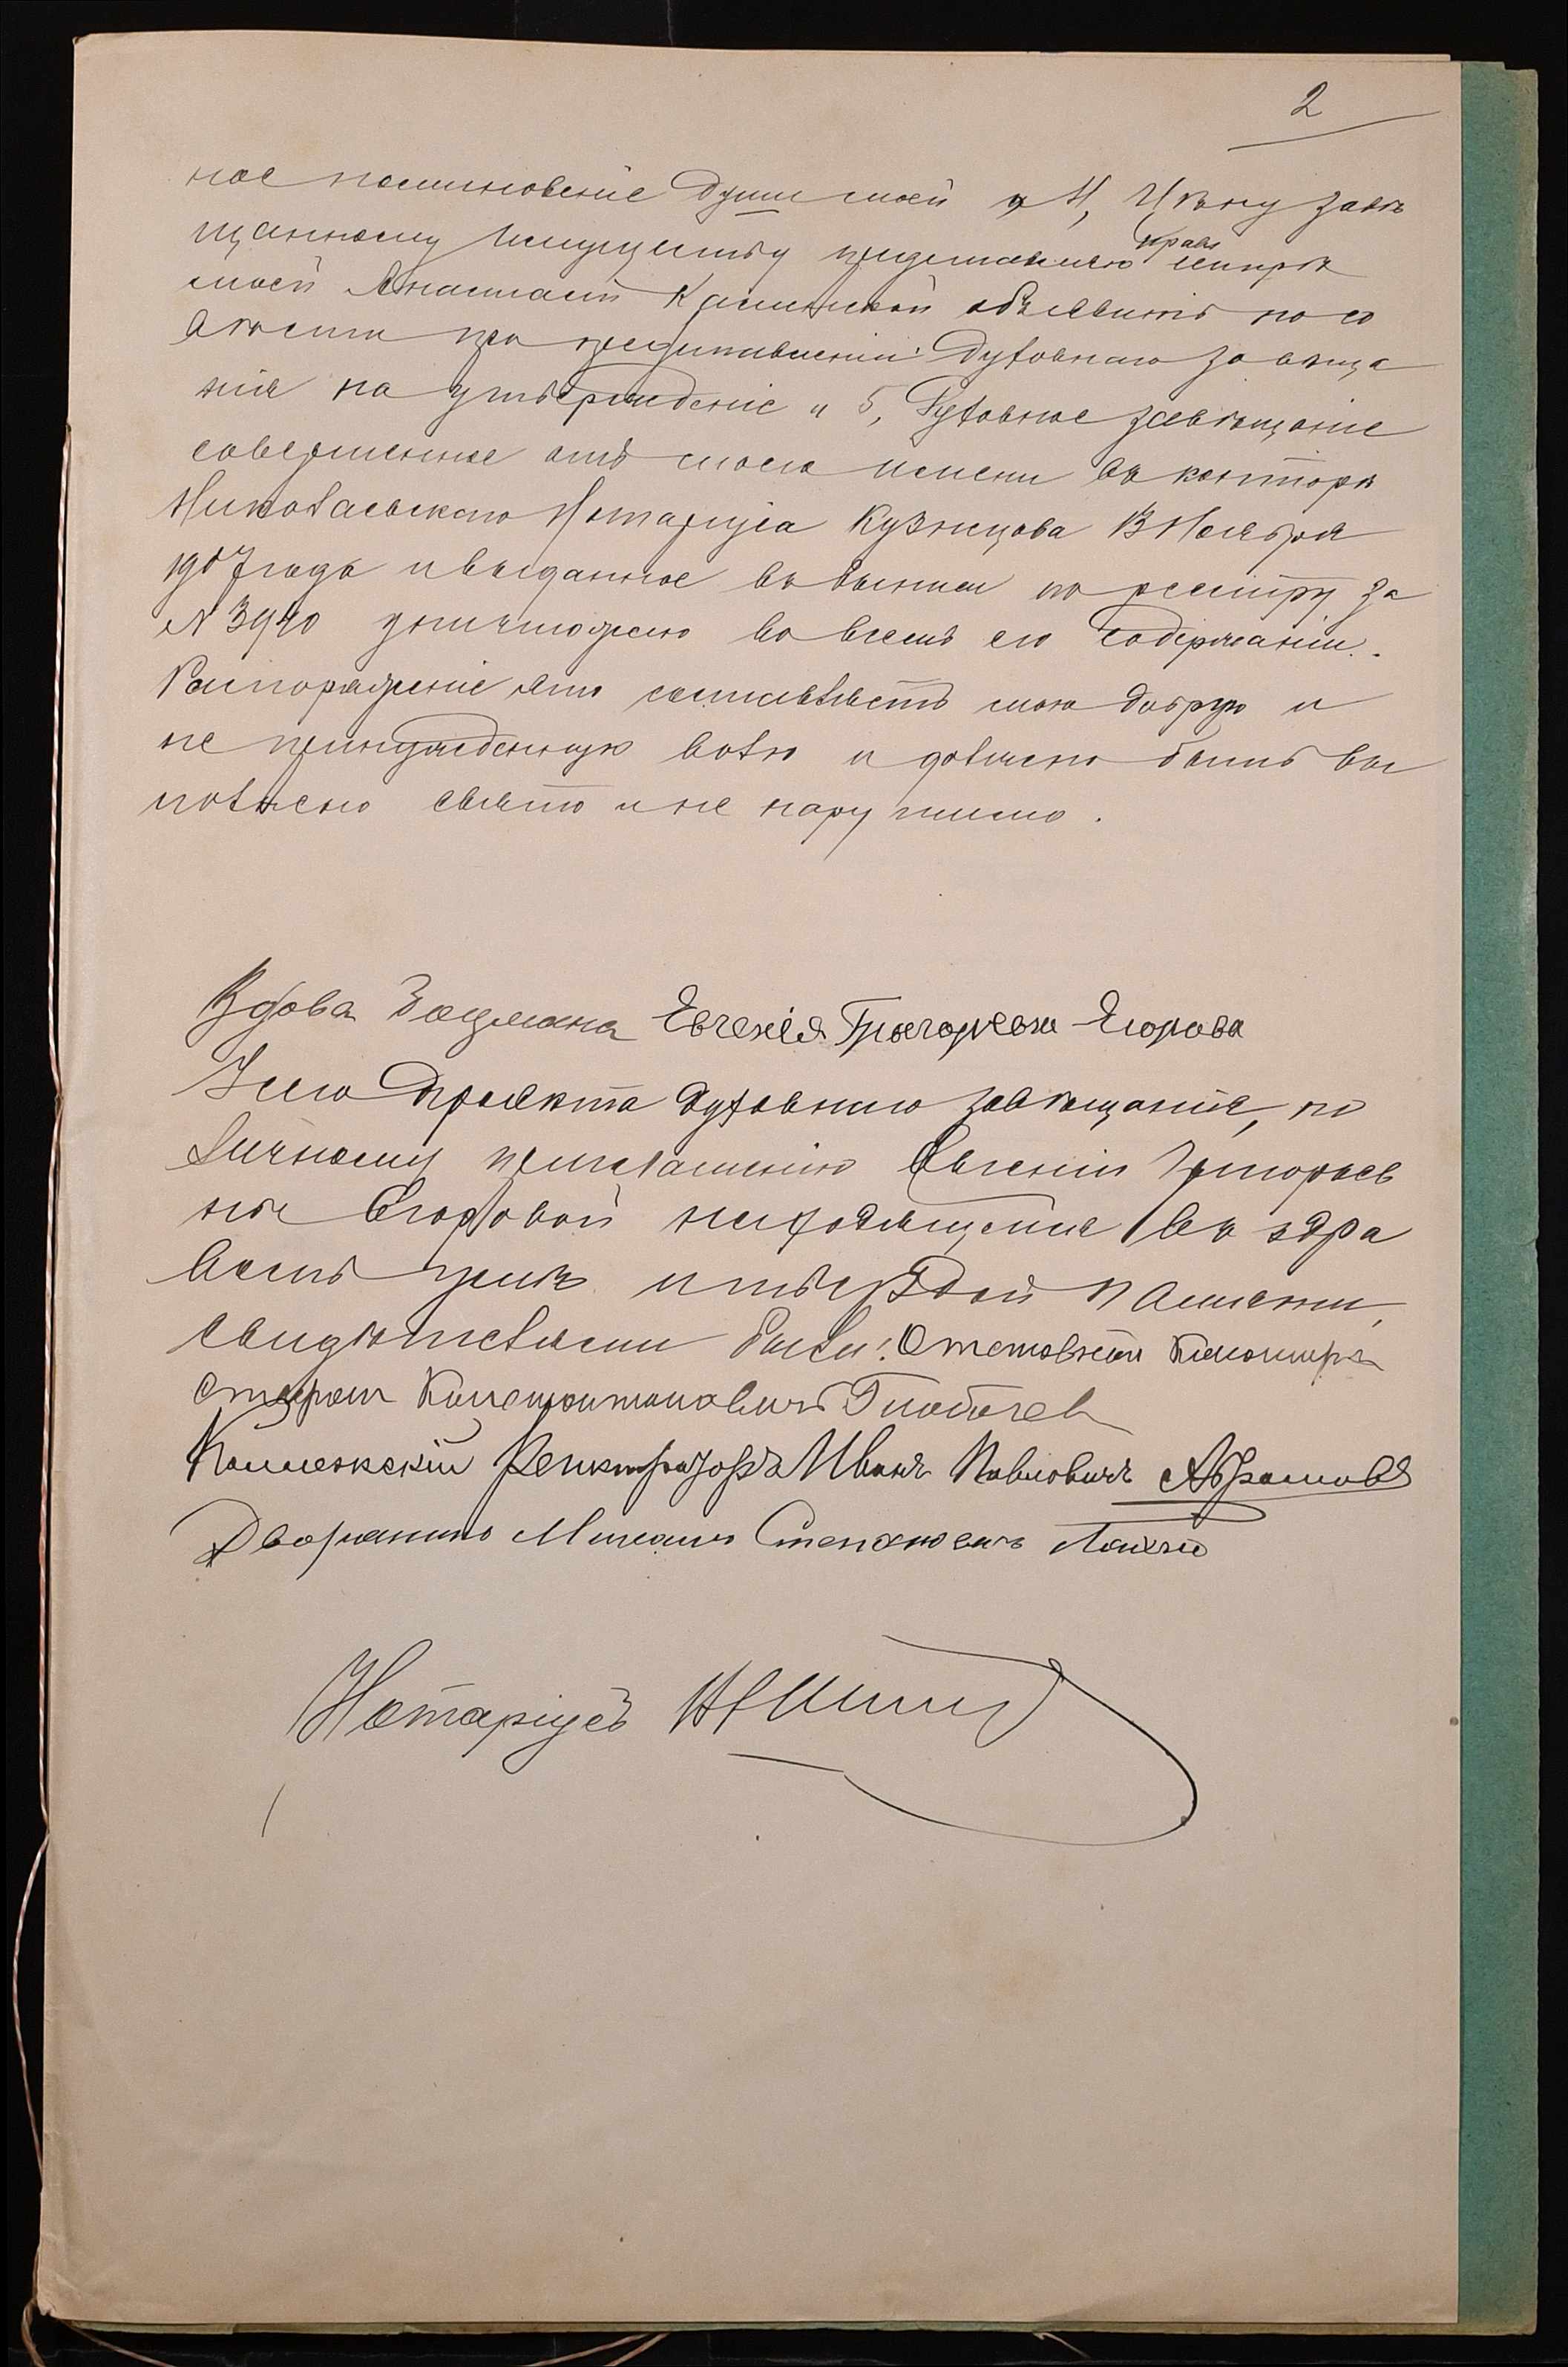 2
ное поминовеніе души моей и 4, Цѣну завѣ
щанному имуществу предоставляю право сестрѣ
моей Анастасіи Каминской объявить по со
вѣсти при представленіи духовнаго завѣща
нія на утвержденіе и 5, Духовное завѣщаніе
совершенное отъ моего имени въ конторѣ
Николаевскаго Нотаріуса Кузнецова 13 Ноября
1907 года и выданное въ выписи по реестру за
№ 3940 уничтожаю во всемъ его содержаніи.
Распоряженіе это составляетъ мою добрую и
не принужденную волю и должно быть вы
полнено свято и не нарушимо.
Вдова Боцмана Евгенія Григорьевна Егорова
У сего проэкта духовнаго завѣщанія, по
личному приглашенію Евгеніи Григорьев
ны Егоровой находящейся въ здра
вомъ умѣ и твердой памяти,
свидѣтелями были: Отставной
Константиновичъ
Коллежскій Регистраторъ Иванъ Павловичъ Абрамовъ
Дворянинъ Михаилъ Степановичъ
Нотаріусъ